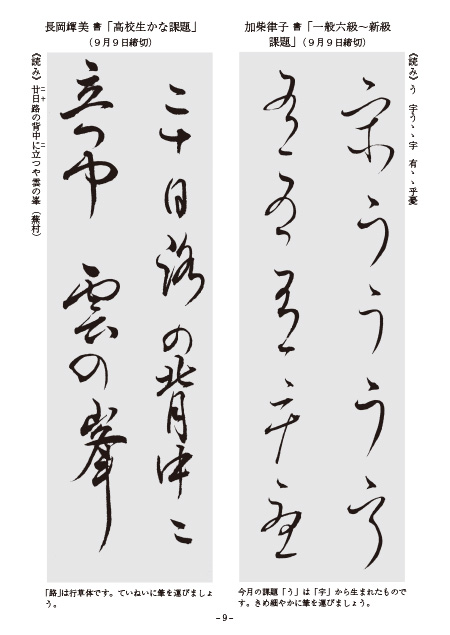 加柴律子 書「一般六級〜新級
課題」(9月9日締切)
《読み》う 宇うゝゝ宇 有ゝゝ乎憂
宇ううう宇
今月の課題「う」は「宇」から生まれたもので
す。きめ細やかに筆を運びましょう。
長岡輝美 書「高校生かな課題」
(9月9日締切)
二十日路の背中二
立つや 雲の峯
《読み》廿日路の背中に立つや雲の峯(蕪村)
二十
ニ
「路」は行草体です。ていねいに筆を運びましょ
う。
-9-